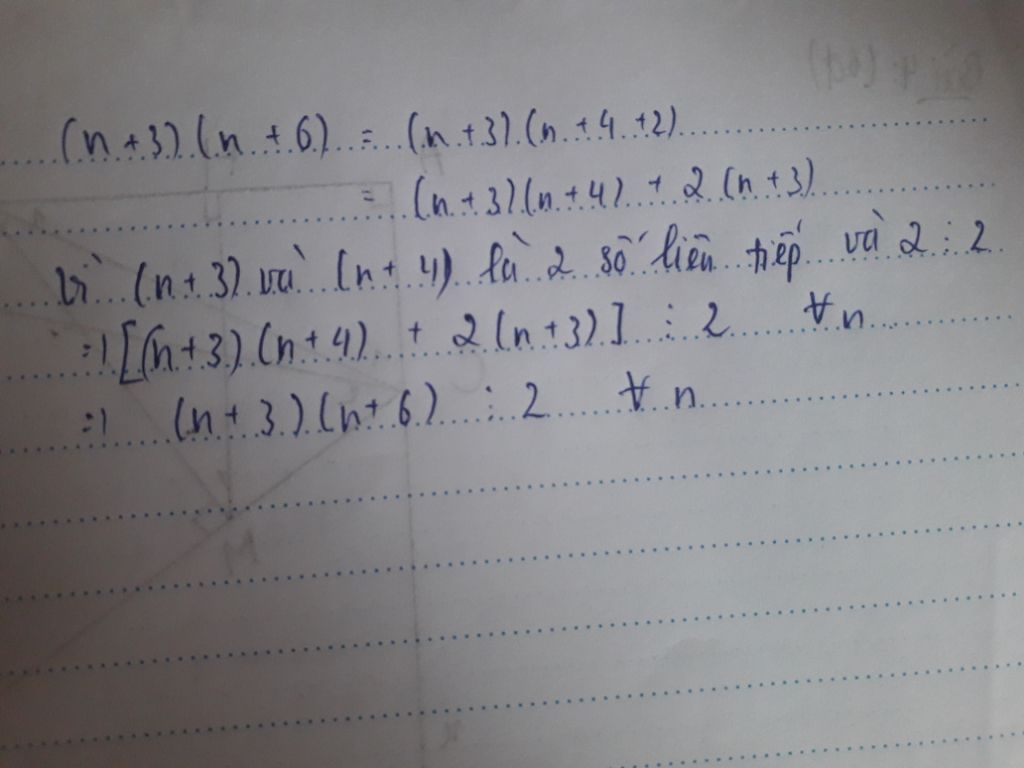 (n+3)(n+6) = (n+3).(n+4+2)
= (n+3)(n+4) + 2(n+3)
Vì (n+3) và (n+4) là 2 số liên tiếp và 2 ⋮ 2
=> [(n+3).(n+4) + 2(n+3)] ⋮ 2 ∀ n
=> (n+3)(n+6) ⋮ 2 ∀ n